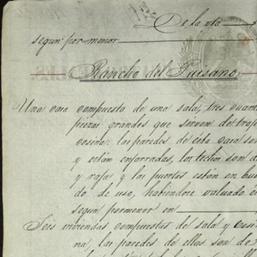 De la vta
segun por menor
Rancho del Paisano.
Una casa compuesta de una sala, tres cuart
piezas grandes que sirven de troje
cosina: las paredes de esta casa son
y están enjarradas, los techos son d
y rafa y las puertas están en bue
do de uso, habiendose valuado en
segun pormenor en
Seis viviendas compuestas de sala y cosi
na, las paredes de ellas son de